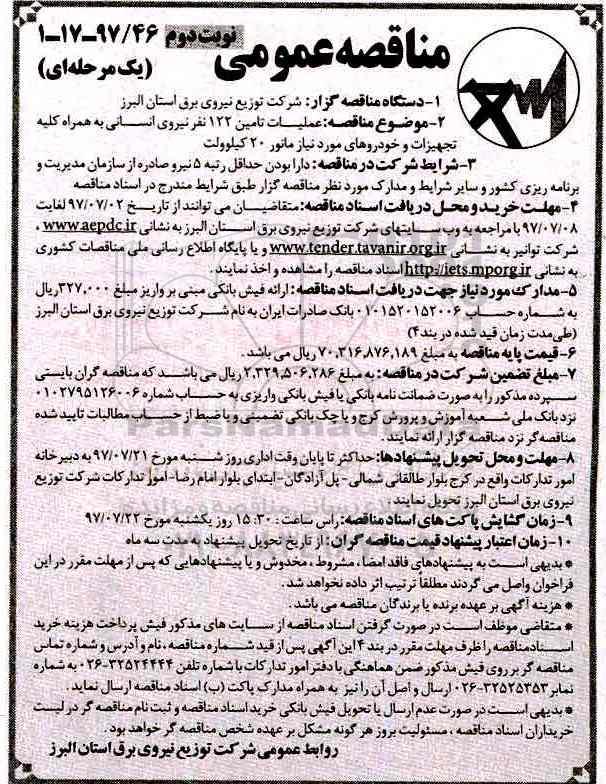 مناقصه عمومی نوبت دوم ۱-۱۷-۹۷/۴۶
(یک مرحله‌ای)
۱-دستگاه مناقصه گزار: شرکت توزیع نیروی برق استان البرز
۲-موضوع مناقصه: عملیات تامین ۱۲۲ نفر نیروی انسانی به همراه کلیه
تجهیزات و خودروهای مورد نیاز مانور ۲۰ کیلوولت
۳-شرایط شرکت در مناقصه: دارا بودن حداقل رتبه ۵ نیرو صادره از سازمان مدیریت و
برنامه ریزی کشور و سایر شرایط و مدارک مورد نظر مناقصه گزار طبق شرایط مندرج در اسناد مناقصه
۴-مهلت خرید و محل دریافت اسناد مناقصه: متقاضیان می توانند از تاریخ ۹۷/۰۷/۰۲ لغایت
۹۷/۰۷/۰۸ با مراجعه به وب سایتهای شرکت توزیع نیروی برق استان البرز به نشانی www.aepdc.ir ،
شرکت توانیر به نشانی www.tender.tavanir.org.ir و یا پایگاه اطلاع رسانی ملی مناقصات کشوری
به نشانی http://iets.mporg.ir اسناد مناقصه را مشاهده و اخذ نمایند .
۵-مدارک مورد نیاز جهت دریافت اسناد مناقصه: ارائه فیش بانکی مبنی بر واریز مبلغ ۳۲۷,۰۰۰ ریال
به شماره حساب ۰۱۰۱۵۲۰۱۵۲۰۰۶ بانک صادرات ایران به نام شرکت توزیع نیروی برق استان البرز
(طی مدت زمان قید شده در بند ۴)
۶-قیمت پایه مناقصه به مبلغ ۷۰,۳۱۶,۸۷۶,۱۸۹ ریال می باشد .
۷-مبلغ تضمین شرکت در مناقصه: به مبلغ ۲,۳۲۹,۵۰۶,۲۸۶ ریال می باشد که مناقصه گران بایستی
سپرده مذکور را به صورت ضمانت نامه بانکی یا فیش بانکی واریزی به حساب شماره ۰۱۰۲۷۹۵۱۲۶۰۰۶
نزد بانک ملی شعبه آموزش و پرورش کرج و یا چک بانکی تضمینی و یا ضبط از حساب مطالبات تایید شده
مناقصه گر نزد مناقصه گزار ارائه نمایند .
۸-مهلت و محل تحویل پیشنهادها: حداکثر تا پایان وقت اداری روز شنبه مورخ ۹۷/۰۷/۲۱ به دبیر خانه
امور تدارکات واقع در کرج بلوار طالقانی شمالی- پل آزادگان- ابتدای بلوار امام رضا- امور تدارکات شرکت توزیع
نیروی برق استان البرز تحویل نمایند .
۹-زمان گشایش پاکت های اسناد مناقصه: راس ساعت : ۱۵:۳۰ روز یکشنبه مورخ ۹۷/۰۷/۲۲
۱۰-زمان اعتبار پیشنهاد قیمت مناقصه گران: از تاریخ تحویل پیشنهاد به مدت سه ماه
* بدیهی است به پیشنهادهای فاقد امضا ، مشروط ، مخدوش و یا پیشنهادهایی که پس از مهلت مقرر در این
فراخوان واصل می گردند مطلقاً ترتیب اثر داده نخواهد شد .
* هزینه آگهی بر عهده برنده یا برندگان مناقصه می باشد .
* متقاضی موظف است در صورت گرفتن اسناد مناقصه از سایت های مذکور فیش پرداخت هزینه خرید
اسناد مناقصه را ظرف مهلت مقرر در بند ۴ این آگهی پس از قید شماره مناقصه ، نام و آدرس و شماره تماس
مناقصه گر بر روی فیش مذکور ضمن هماهنگی با دفتر امور تدارکات با شماره تلفن ۳۲۵۲۴۴۴۴-۰۲۶ به شماره
نمابر ۳۲۵۲۵۳۵۳-۰۲۶ ارسال و اصل آن را نیز به همراه مدارک پاکت (ب) اسناد مناقصه ارسال نماید .
* بدیهی است در صورت عدم ارسال یا تحویل فیش بانکی خرید اسناد مناقصه و ثبت نام مناقصه گر در لیست
خریداران اسناد مناقصه ، مسئولیت بروز هر گونه مشکل بر عهده شخص مناقصه گر خواهد بود .
روابط عمومی شرکت توزیع نیروی برق استان البرز